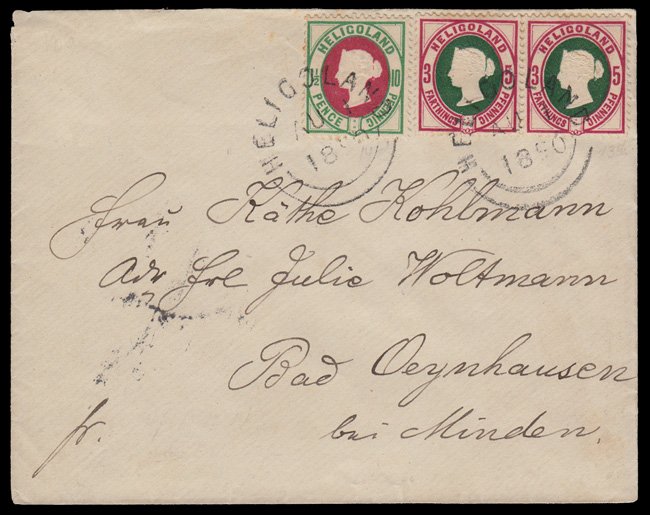 HELIGOLAND
½ 10
PENCE PFENNIG
HELIGOLAND
3 5
FARTHINGS PFENNIG
HELIGOLAND
3 5
FARTHINGS PFENNIG
HELIGOLAND
AU
1890
HELIGOLAND
AU
1890
Frau Käthe Kohlmann
Adr Frl Julie Woltmann
Bad Oeynhausen
fr. bei Minden.